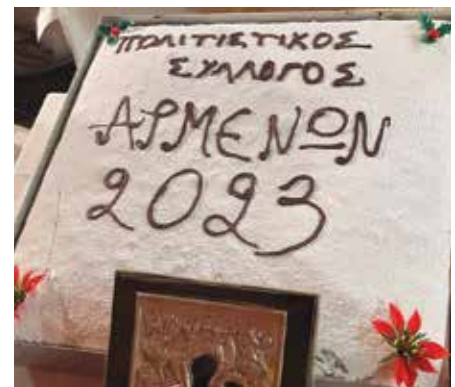 ΠΟΛΙΤΙΣΤΙΚΟΣ
ΣΥΛΛΟΓΟΣ
ΑΡΜΕΝΩΝ
2023